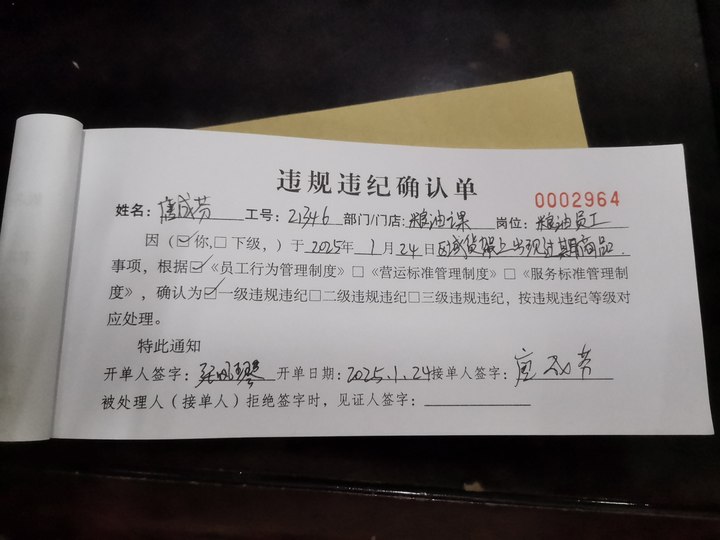 违规违纪确认单
0002964
姓名：唐成芬 工号：21346 部门/门店：粮油课 岗位：粮油员工
因（☑你，□下级，）于2025年1月24日区域货架上出现过期商品
事项，根据☑《员工行为管理制度》□《营运标准管理制度》□《服务标准管理制
度》，确认为☑一级违规违纪□二级违规违纪□三级违规违纪，按违规违纪等级对
应处理。
特此通知
开单人签字： 开单日期：2025.1.24接单人签字：唐成芬
被处理人（接单人）拒绝签字时，见证人签字：